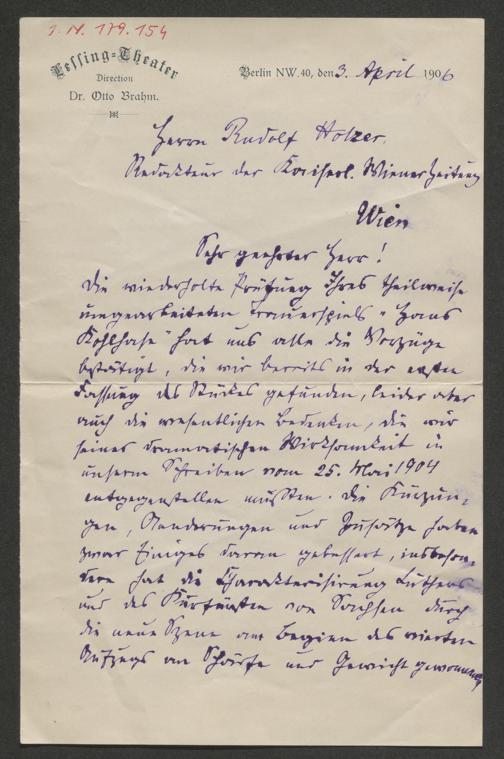 I. N. 179.154
Lessing-Theater
Direction
Dr. Otto Brahm.
Berlin NW. 40, den 3. April 1906
Herrn Rudolf Holzer.
Redakteur der Kaiserl. Wiener Zeitung
Wien
Sehr geehrter Herr!
Die wiederholte Prüfung Ihres theilweise
umgearbeiteten Trauerspiels „Hans
Kohlhase“ hat uns alle die Vorzüge
bestätigt, die wir bereits in der ersten
Fassung des Stückes gefunden, leider aber
auch die wesentlichen Bedenken, die wir
seiner dramatischen Wirksamkeit in
unserm Schreiben vom 25. Mai 1904
entgegenstellen mußten. Die Kürzun-
gen, Aenderungen und Zusätze haben
zwar Einiges daran gebessert, insbeson-
dere hat die Charakterisirung Luthers
und des Kurfürsten von Sachsen durch
die neue Szene am Beginn des vierten
Aufzugs an Schärfe und Gewicht gewonnen,